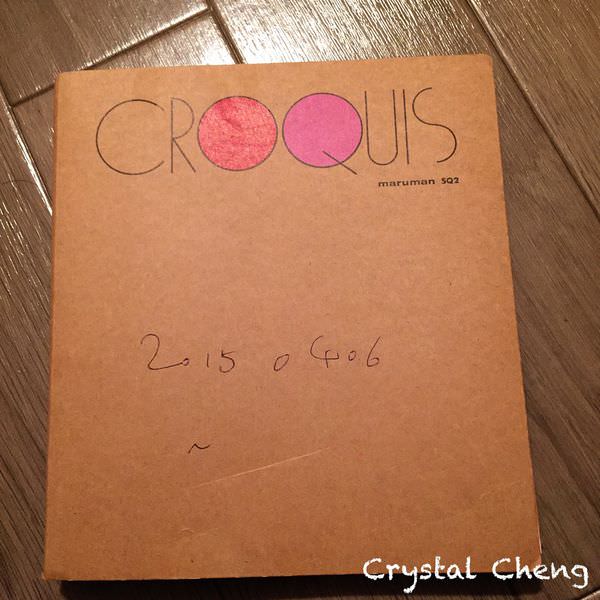 CROQUIS
maruman SQ2
2015 0406
~
Crystal Cheng